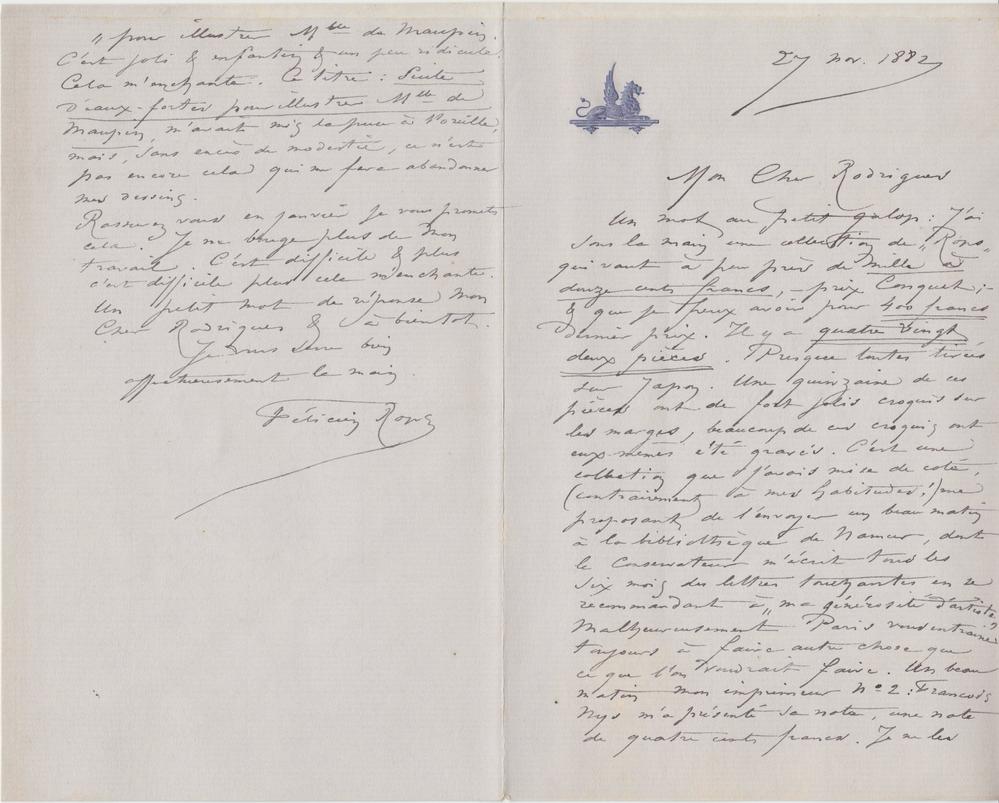 27 nov. 1882
Mon Cher Rodrigues
Un mot au petit galop : J'ai
sous la main une collection de „Rops„
qui vaut à peu près de Mille à
douze cents francs, – prix Conquet ; –
& que je peux avoir pour 400 francs
dernier prix. Il y a quatre vingt
deux pièces. Presque toutes tirées
sur Japon. Une quinzaine de ces
pièces ont de fort jolis croquis sur
les marges, beaucoup de ces croquis ont
eux-mêmes été gravés. C'est une
collection que j'avais mise de coté,
(contrairement à mes habitudes !) me
proposant de l'envoyer un beau matin
à la bibliothèque de Namur, dont
le Conservateur m'écrit tous les
six mois des lettres touchantes en se
recommandant à „ma générosité d'artiste„
Malheureusement Paris vous entraine
toujours à faire autre chose que
ce que l'on voudrait faire. Un beau
matin mon imprimeur Nº 2 : François
Nys m'a présenté sa note, une note
de quatre cents francs. Je ne les
„ pour illustrer Mlle de Maupin.
C'est joli & enfantin & un peu ridicule.
Cela m'enchante. Ce titre : Suite
d'eaux-fortes pour illustrer Mlle de
Maupin, m'avait mis la puce à l'oreille,
mais, sans excès de modestie, ce n'est
pas encore cela qui me fera abandonner
mes dessins.
Rassurez vous en janvier je vous promets
cela. Je ne bouge plus de mon
travail. C'est difficile & plus
c'est difficile plus cela m'enchante.
Un petit mot de réponse mon
Cher Rodrigues & à bientot.
Je vous serre bien
affectueusement la main.
Félicien Rops